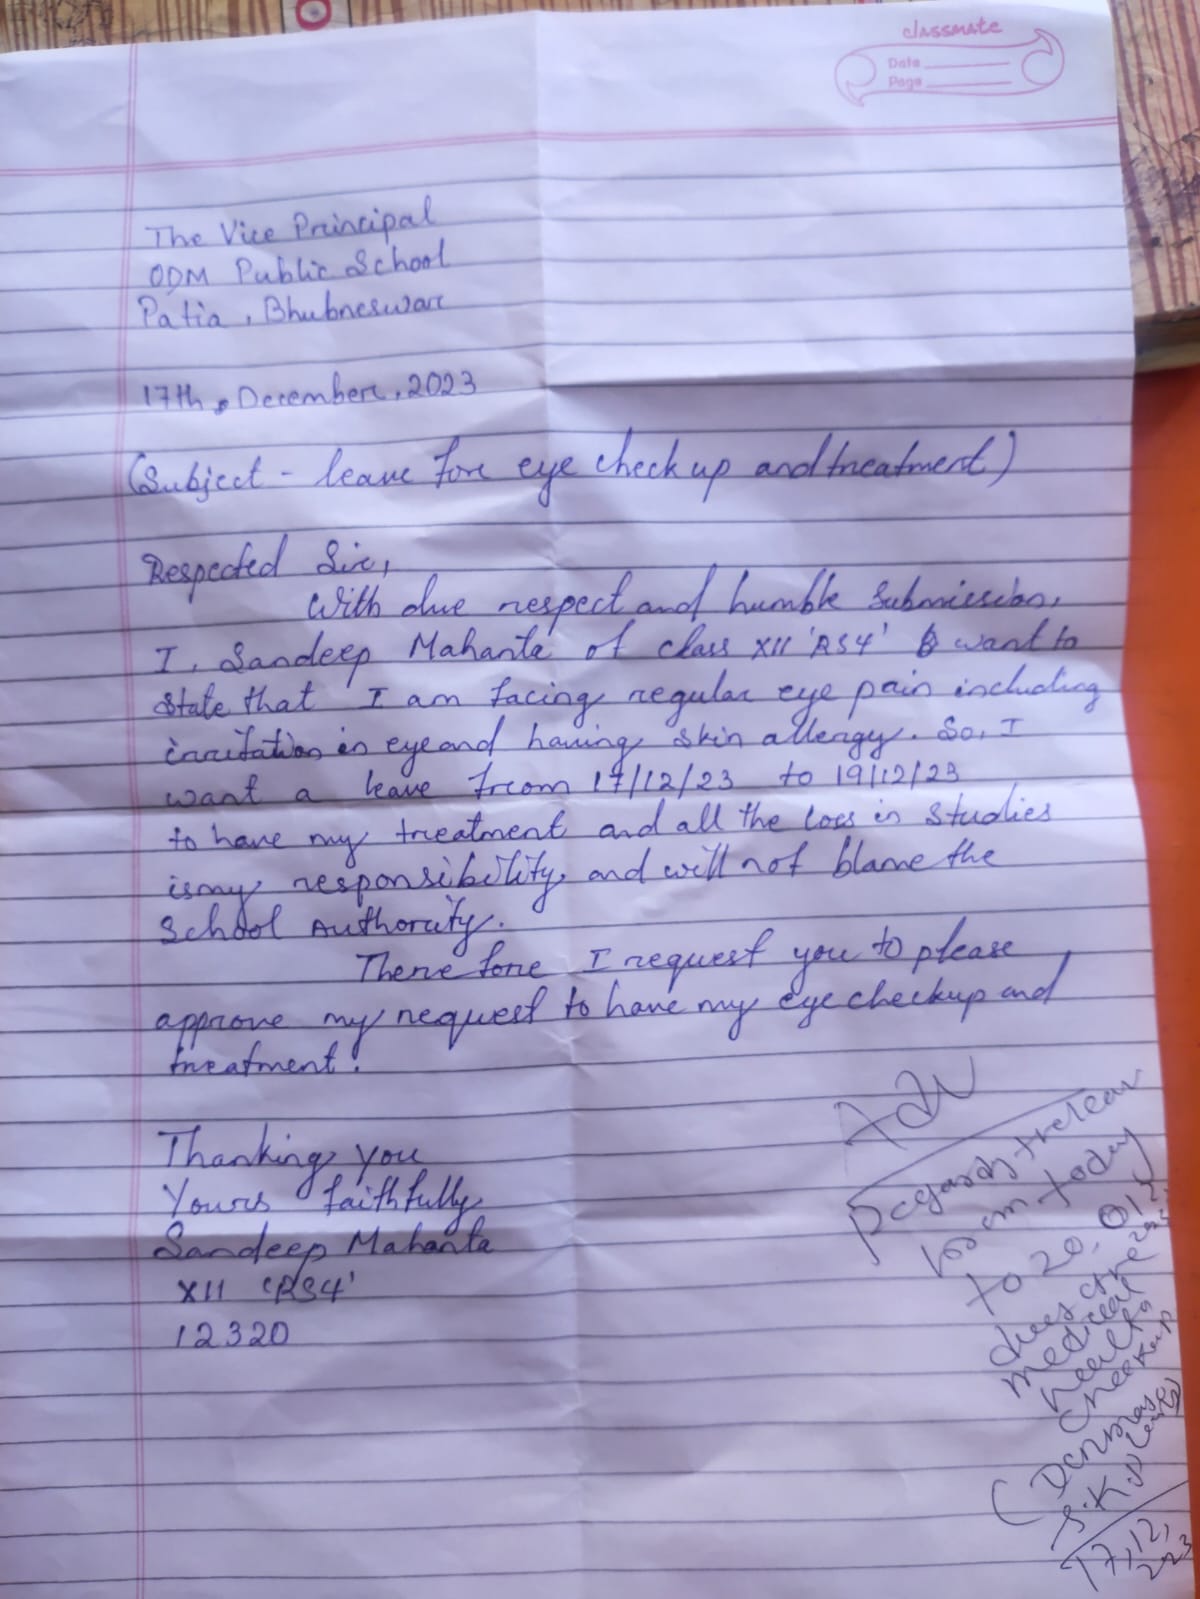 classmate
Date
Page
The Vice Principal
ODM Public School
Patia, Bhubneswar
17th, December, 2023
(Subject - leave for eye check up and treatment)
Respected Sir,
With due respect and humble submission,
I, Sandeep Mahanta of class XII 'RS4' want to
state that I am facing regular eye pain including
irritation in eye and having skin allergy. So, I
want a leave from 17/12/23 to 19/12/23
to have my treatment and all the loss in studies
is my responsibility, and will not blame the
School Authority.
There fore I request you to please
approve my request to have my eye checkup and
treatment.
Thanking you
Yours faithfully
Sandeep Mahanta
XII 'RS4'
12320
today
to 20,
medical
health
checkup
17,12,